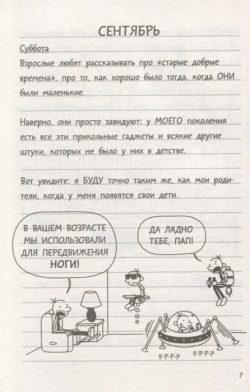 СЕНТЯБРЬ
Суббота
Взрослые любят рассказывать про «старые добрые
времена», про то, как хорошо было тогда, когда ОНИ
были маленькие.
Наверно, они просто завидуют: у МОЕГО поколения
есть все эти прикольные гаджеты и всякие другие
штуки, которых не было у них в детстве.
Вот увидите: я БУДУ точно таким же, как мои роди-
тели, когда у меня появятся свои дети.
В ВАШЕМ ВОЗРАСТЕ
МЫ ИСПОЛЬЗОВАЛИ
ДЛЯ ПЕРЕДВИЖЕНИЯ
НОГИ!
ДА ЛАДНО
ТЕБЕ, ПАП!
Р-Р-Р-Р
Р-Р-Р-Р
7